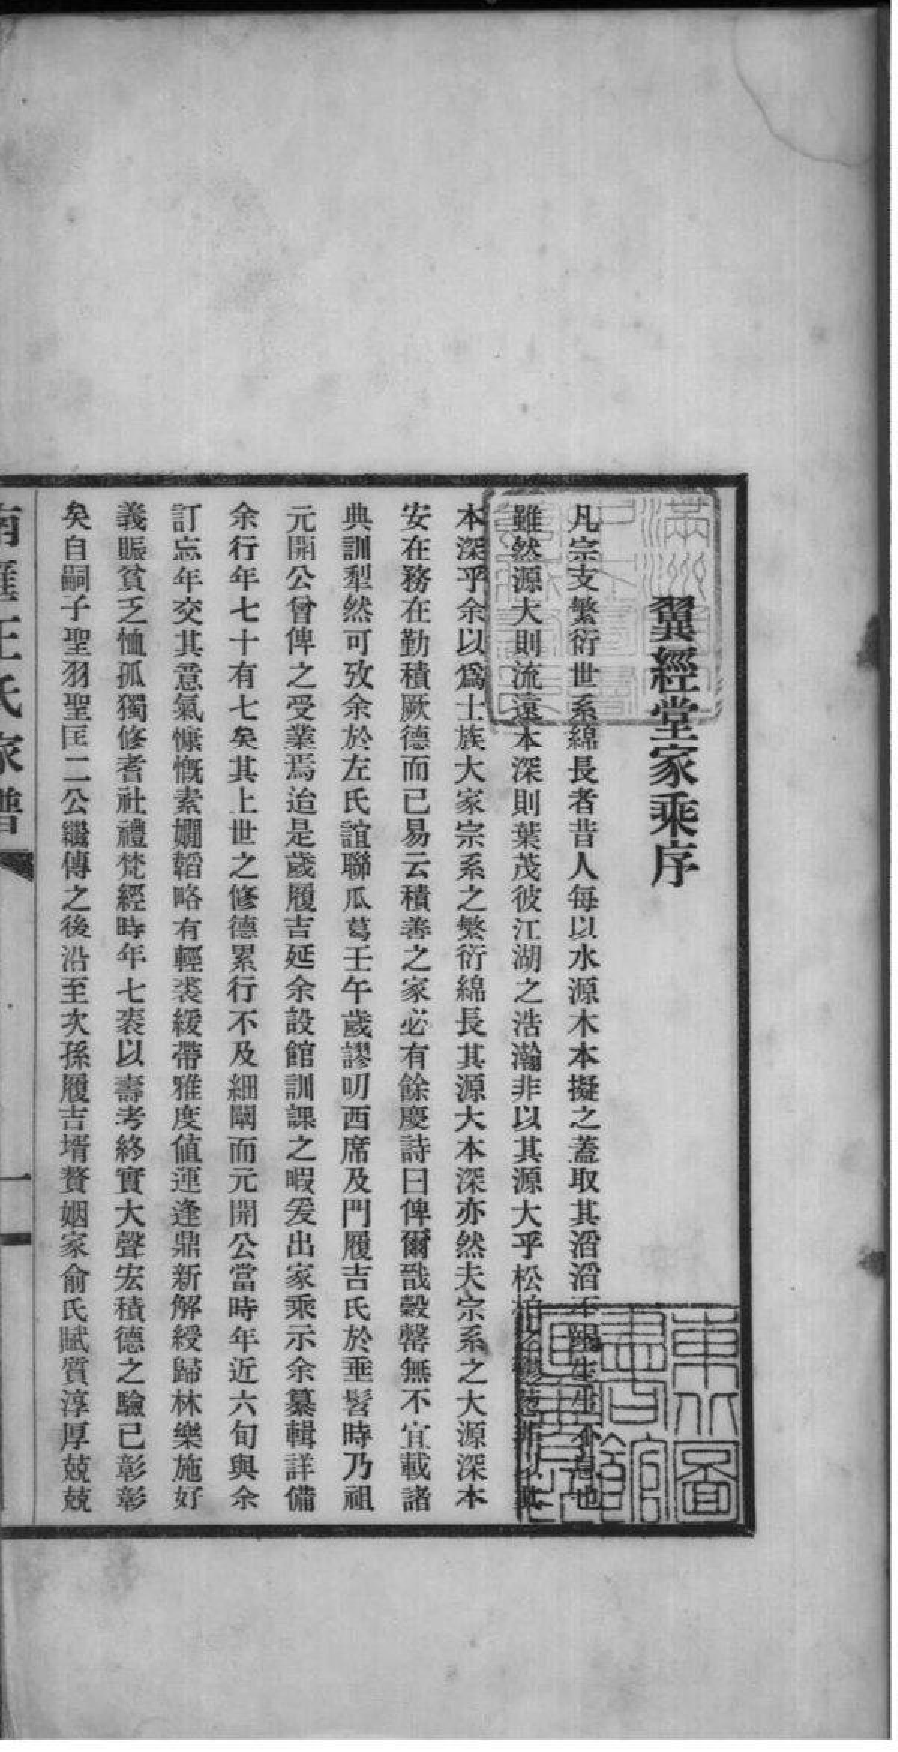 翼經堂家乘序
凡宗支繁衍世系綿長者昔人每以水源木本擬之蓋取其滔滔不竭生生不息也
雖然源大則流遠本深則葉茂彼江湖之浩瀚非以其源大乎松柏之鬱葱非以其
本深乎余以爲士族大家宗系之繁衍綿長其源大本深亦然夫宗系之大源深本
安在務在勤積厥德而已易云積善之家必有餘慶詩曰俾爾戩穀罄無不宜載諸
典訓犁然可攷余於左氏誼聯瓜葛壬午歲謬叨西席及門履吉氏於垂髫時乃祖
元開公曾俾之受業焉迨是歲履吉延余設館訓課之暇爰出家乘示余纂輯詳備
余行年七十有七矣其上世之修德累行不及細闡而元開公當時年近六旬與余
訂忘年交其意氣慷慨素嫺韜略有輕裘緩帶雅度値運逢鼎新解綬歸林樂施好
義賑貧乏恤孤獨修耆社禮梵經時年七袠以壽考終實大聲宏積德之驗已彰彰
矣自嗣子聖羽聖匡二公繼傳之後沿至次孫履吉壻贅姻家俞氏賦質淳厚兢兢
王氏家譜
一
東北圖
書館